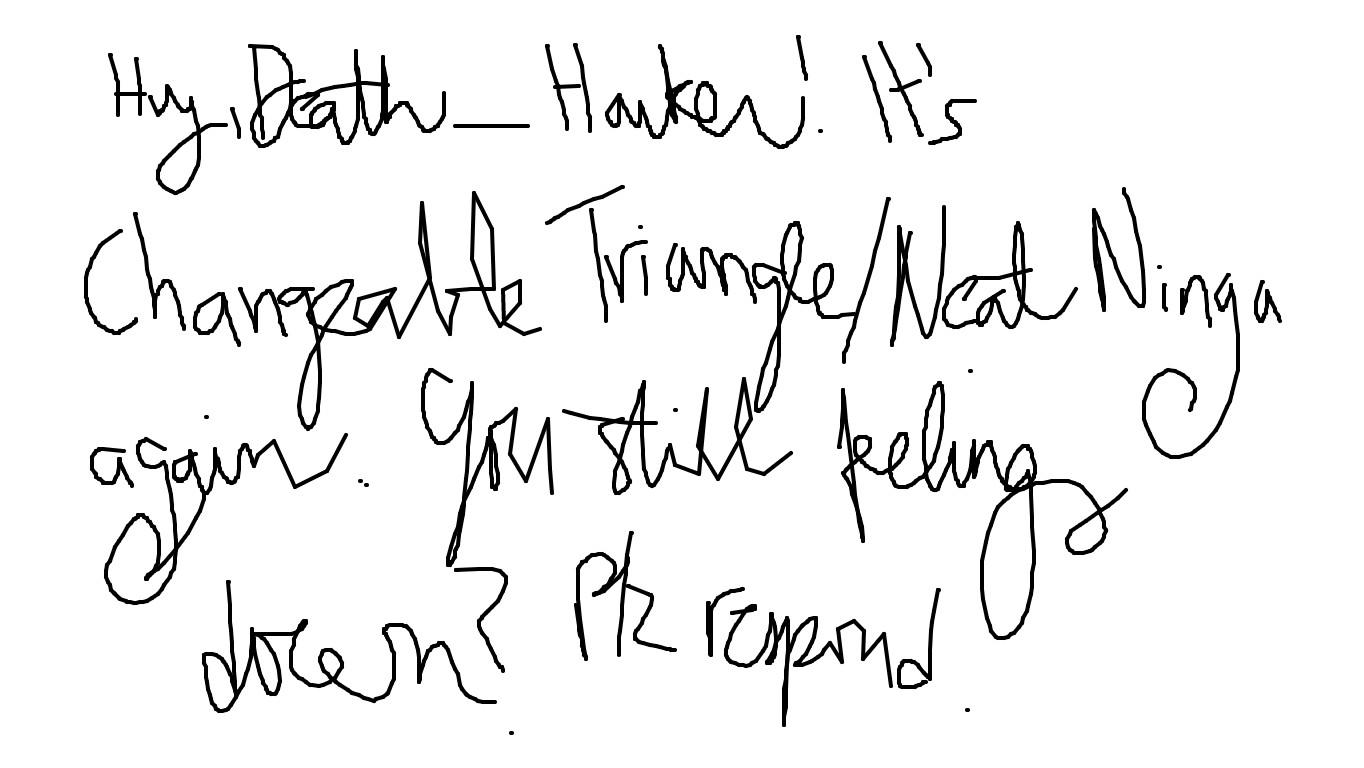 Hy, Death_Hanker! It's
Changeable Triangle/Neat Ninga
again. You still feeling
doesn? Plz respond.